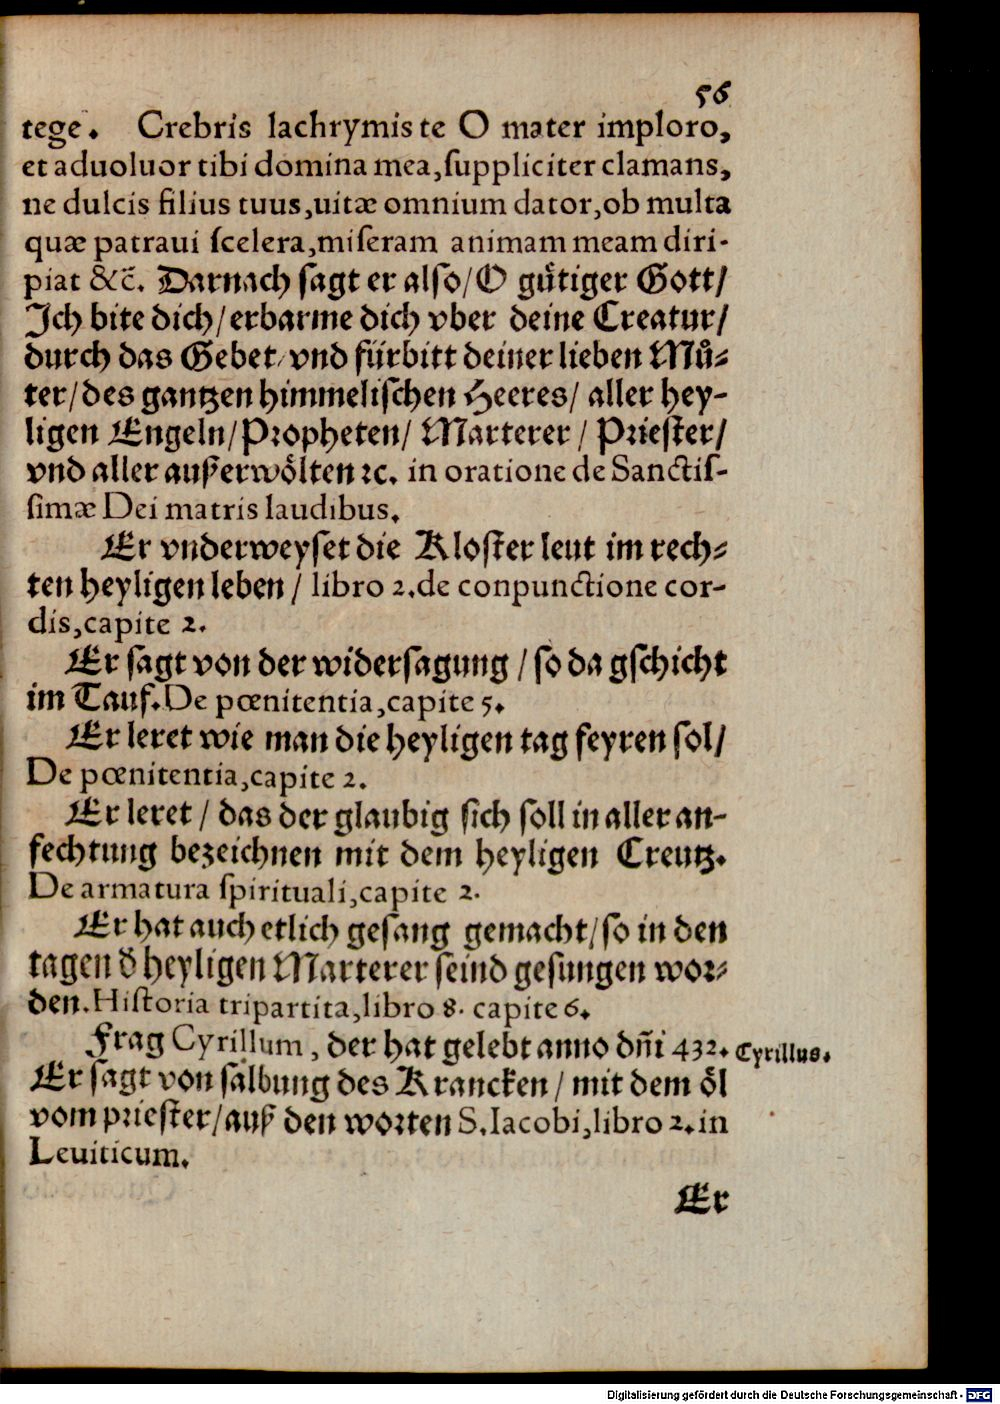 56
tege. Crebris lachrymis te O mater imploro,
et aduoluor tibi domina mea, suppliciter clamans,
ne dulcis filius tuus, uitæ omnium dator, ob multa
quæ patraui scelera, miseram animam meam diri-
piat &c̄. Darnach sagt er also/ O gůtiger Gott/
Ich bite dich/ erbarme dich vber deine Creatur/
durch das Gebet/ vnd fürbitt deiner lieben Můt⸗
ter/ des gantzen himmelischen Heeres/ aller hey-
ligen Engeln/ Propheten/ Marterer/ Priester/
vnd aller außerwölten ꝛc. in oratione de Sanctis-
simæ Dei matris laudibus.
Er vnderweyset die Kloster leut im rech⸗
ten heyligen leben/ libro 2. de conpunctione cor-
dis, capite 2.
Er sagt von der widersagung/ so da gschicht
im Tauf. De pœnitentia, capite 5.
Er leret wie man die heyligen tag feyren sol/
De pœnitentia, capite 2.
Er leret/ das der glaubig sich soll in aller an-
fechtung bezeichnen mit dem heyligen Creutz.
De armatura spirituali, capite 2.
Er hat auch etlich gesang gemacht/ so in den
tagen d̄ heyligen Marterer seind gesungen wor⸗
den. Historia tripartita, libro 8. capite 6.
Frag Cyrillum, der hat gelebt anno dn̄i 432. Cyrillus.
Er sagt von salbung des Krancken/ mit dem öl
vom priester/ auß den worten S. Iacobi, libro 2. in
Leuiticum.
Er
Digitalisierung gefördert durch die Deutsche Forschungsgemeinschaft - DFG